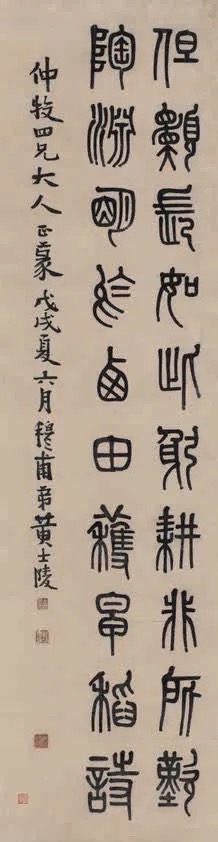 但願長如此躬耕非所歎
陶淵明於西田獲早稻詩
仲牧四兄大人正篆戊戌夏六月穆甫弟黃士陵